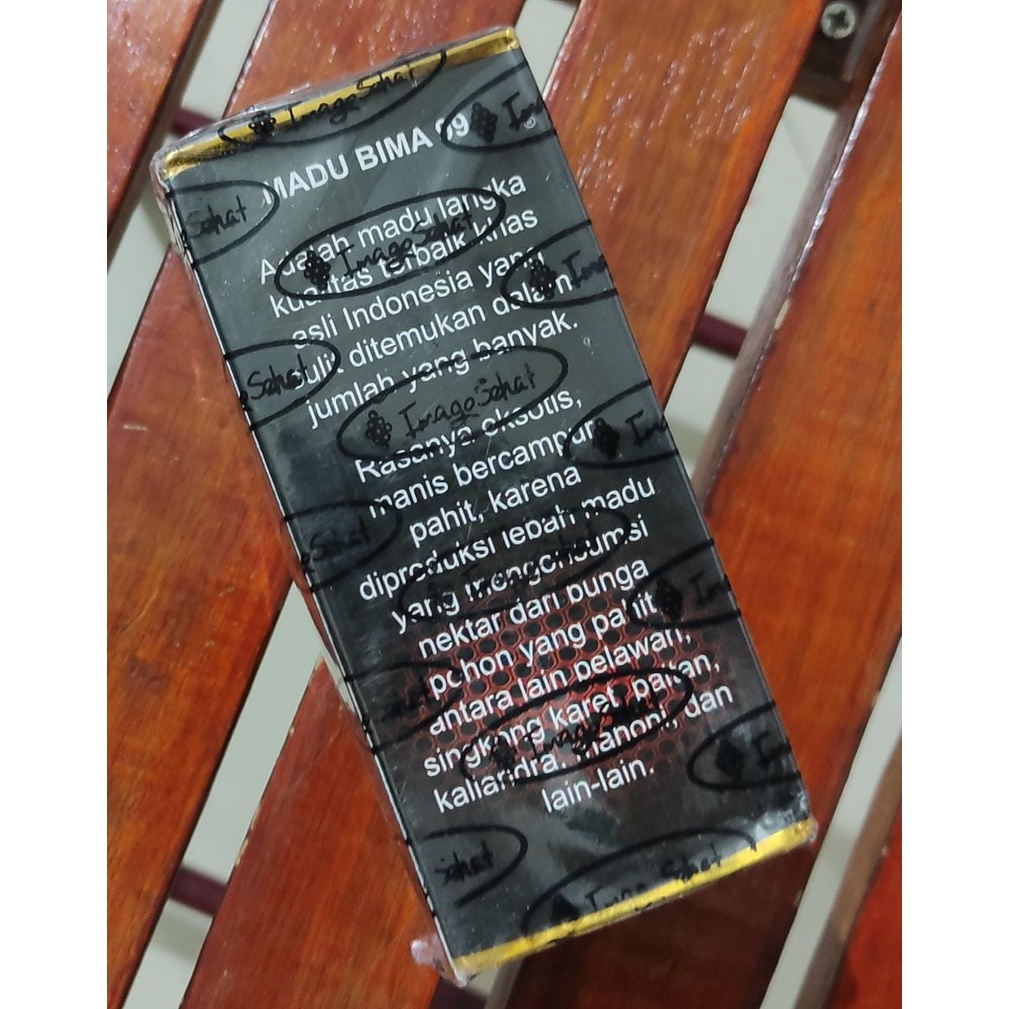 Imago Sehat
MADU BIMA 99
Adalah madu langka
kualitas terbaik khas
asli Indonesia yang
sulit ditemukan dalam
jumlah yang banyak.
Rasanya eksotis,
manis bercampur
pahit, karena
diproduksi lebah madu
yang mengonsumsi
nektar dari bunga
pohon yang pahit
antara lain pelawan,
singkong karet, paitan,
kaliandra, mahoni, dan
lain-lain.
Sehat
Imago Sehat
Sehat
Imago Sehat
Sehat
Imago Sehat
Imago Sehat
Sehat
Imago Sehat